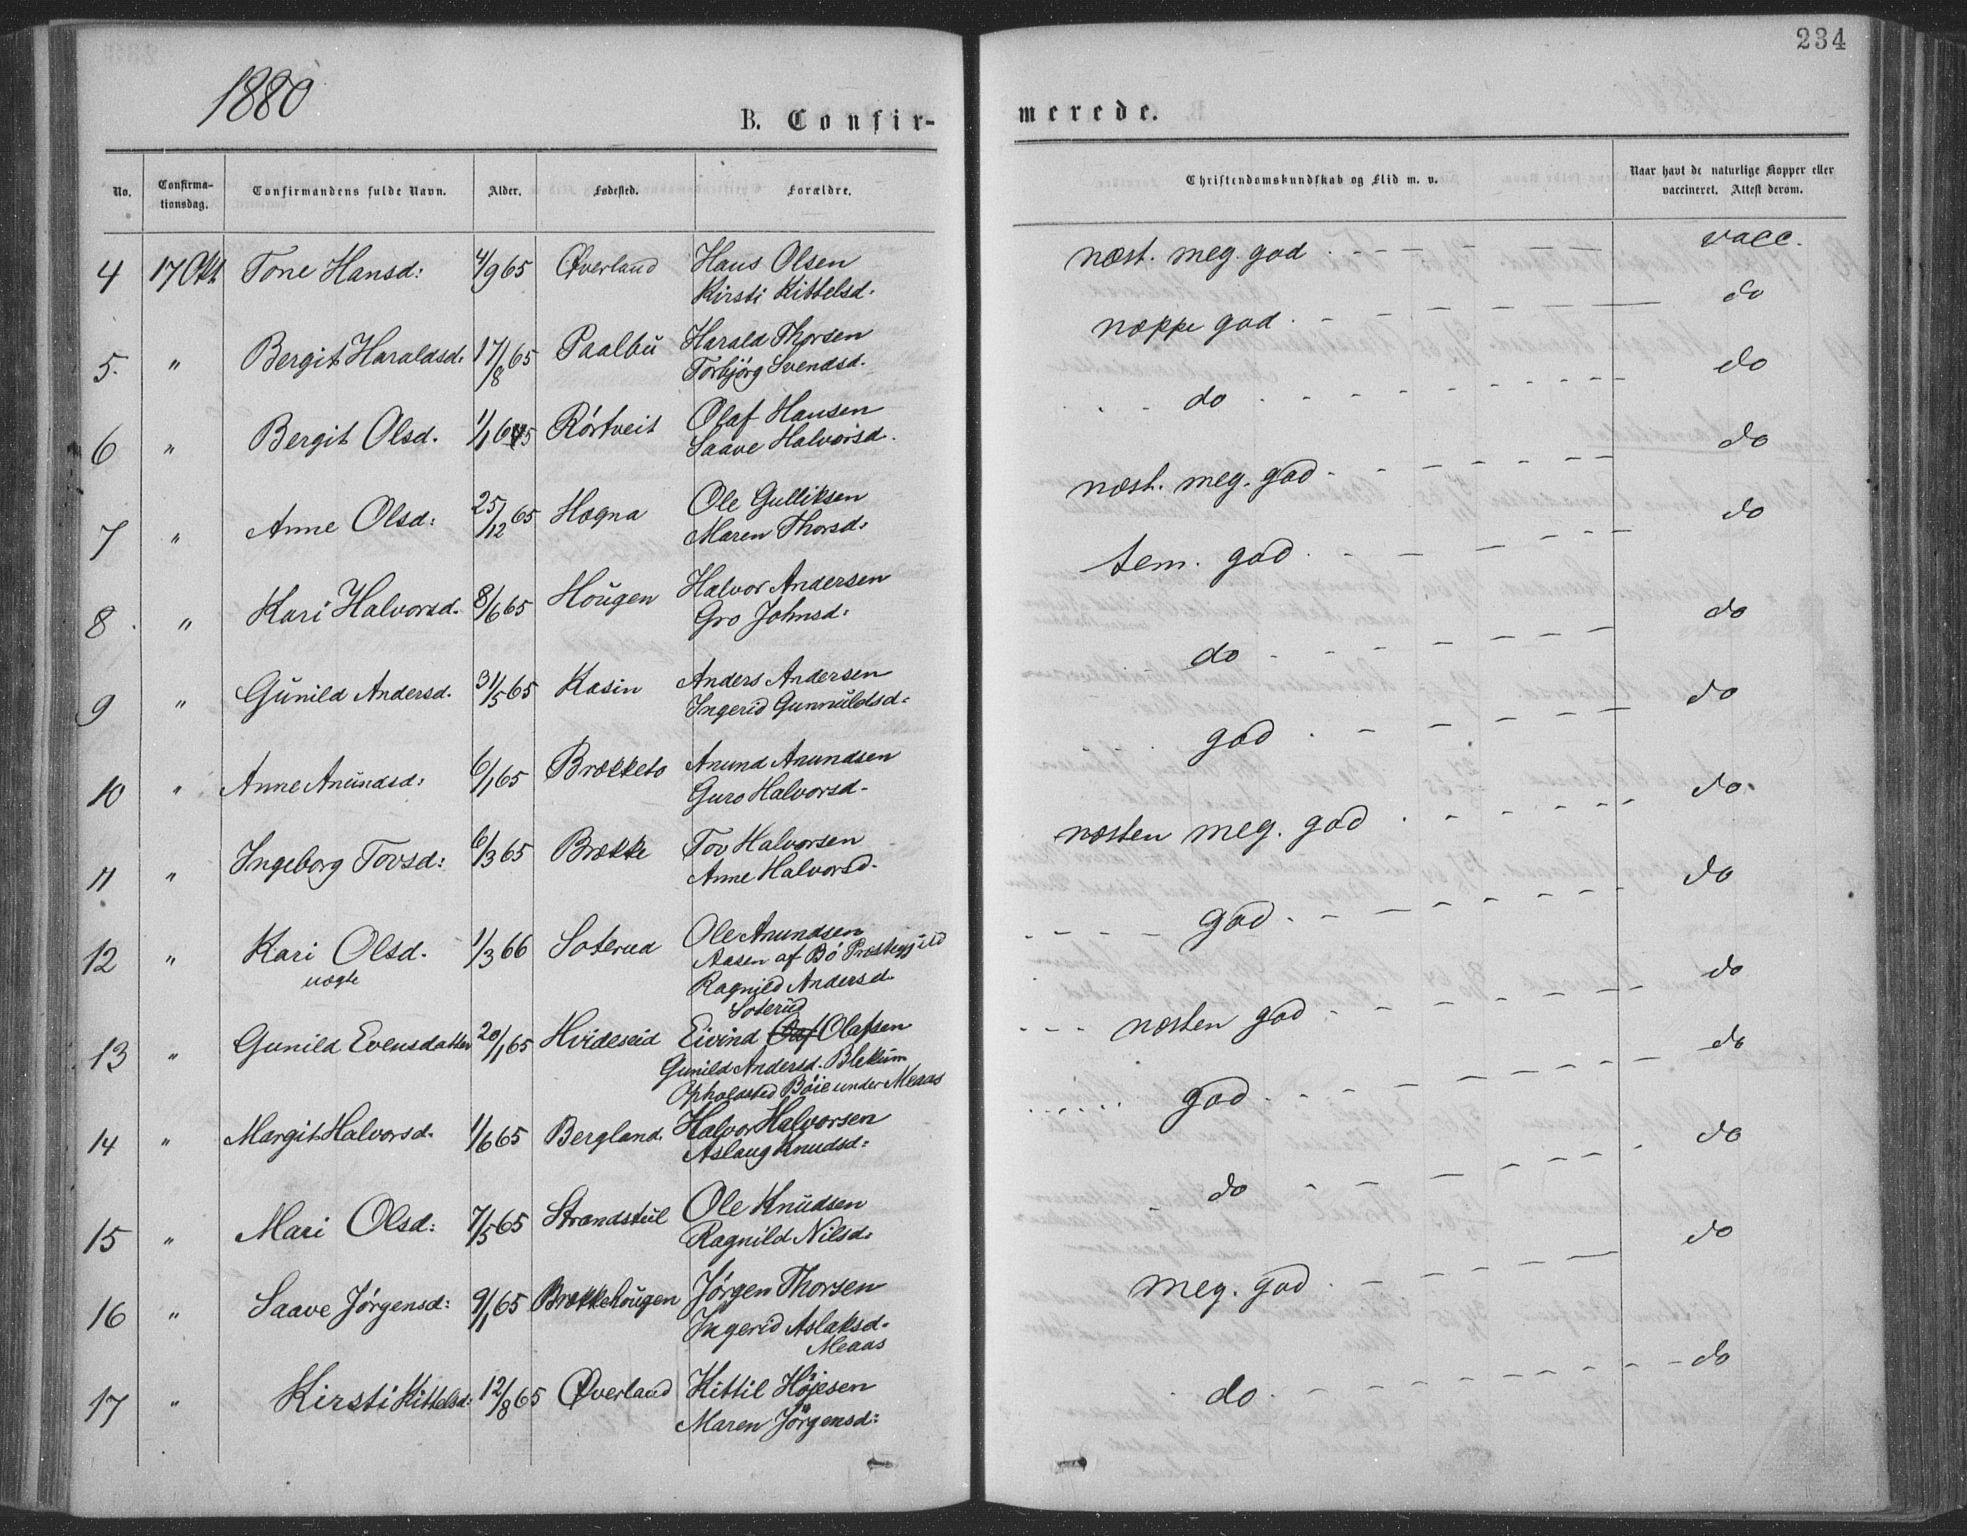 234
1880
B. Confir-
merede.
No. Confirma-tionsdag. Confirmandens fulde Navn. Alder. Fødested. Forældre. Christendomskundskab og Flid m. v. Naar havt de naturlige Kopper eller vaccineret. Attest derom.
4 17 Okt Tone Hansd: 4/9 65 Øverland Hans Olsen næst. meg. god vacc.
Kirsti Kittelsd.
5. " Bergit Haraldsd. 17/8 65 Paalbu Harald Thorsen næppe god do
Torbjörg Svendsd.
6 " Bergit Olsd. 1/1 65 Rørtveit Olaf Hansen do do
Saave Halvorsd.
7 " Anne Olsd: 25/12 65 Hogna Ole Gulliksen næst. meg. god do
Maren Thorsd:
8. " Kari Halvorsd. 8/6 65 Hougen Halvor Andersen tem. god do
Gro Johnsd:
9 " Gunild Andersd. 31/5 65 Kasin Anders Andersen do do
Ingerid Gunnuldsd.
10 " Anne Anundsd: 6/1 65 Brækkebo Anund Anundsen god do
Guro Halvorsd.
11 " Ingeborg Tovsd: 6/3 65 Brække Tov Halvorsen næsten meg. god do
Anne Halvorsd.
12 " Kari Olsd. 1/3 66 Soterud Ole Anundsen god do
uægte Aasen af Bø Præstegjeld
Ragnild Andersd.
Soterud
13 " Gunild Evensdatter 20/1 65 Hvideseid Eivind Olaf Olafsen næsten god do
Gunild Andersd. Blekum
Opholdsted Bøie under Meaas
14 " Margit Halvorsd. 1/6 65 Bergland. Halvor Halvorsen god do
Aslaug Knudsd:
15 " Mari Olsd: 7/5 65 Strandstul Ole Knudsen do do
Ragnild Nilsd:
16 " Saave Jørgensd: 9/1 65 Brækkehougen Jørgen Thorsen meg. god do
Ingerid Aslaksd.
Meaas
17 " Kirsti Kittelsd: 12/8 65 Øverland Kittil Højesen do do
Maren Jørgensd: